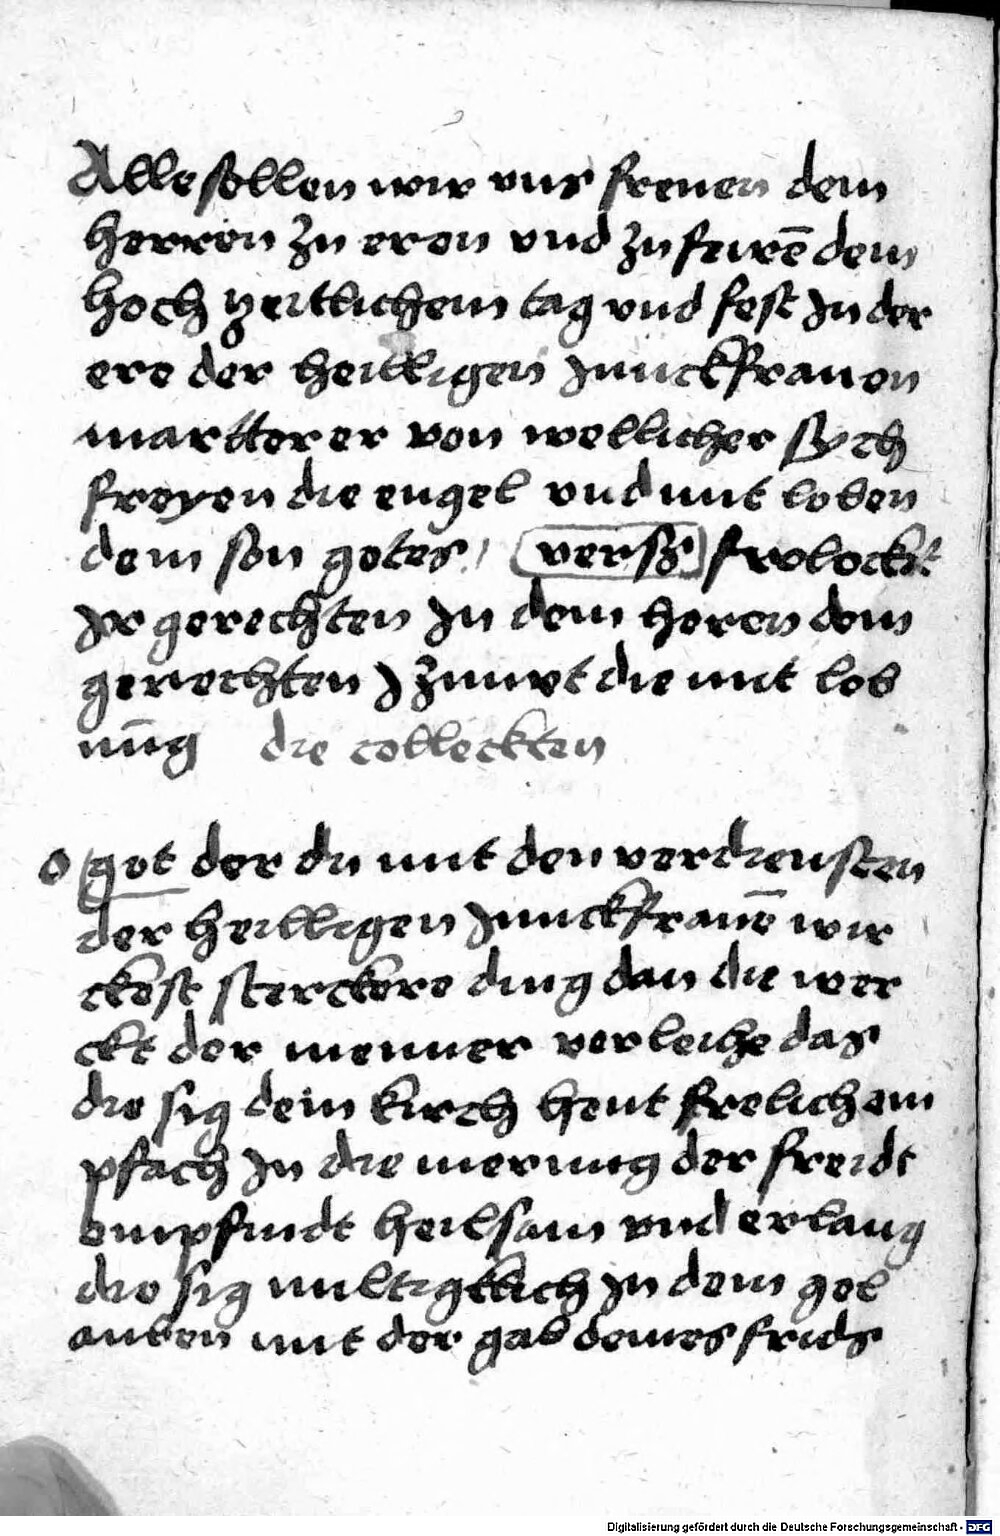 Alle sollen wir vns freuen dem
herren zu eren vnd zu feirē dem
hoch zeitlichem tag vnd fest Jn der
ere der heilligen Junckfrauen
martterer von wellicher sych
freyen die engel vnd mit loben
dem son gotes / versz frolockt
Jr gerechten Jn dem heren dem
gerrechten J zimvt die mit lob
nūg die colleckten
O got der du mit den verdiensten
der heilligen Junckfrauē wir
ckest sterckere ding dan die wer
ckt der menner verleihe das
die sig dein kirch heut frelich em
pfach Jn die merung der freidt
empfindt heilsam vnd erlang
die sig miltigklich Jn dem gel
auben mit der gab deines frids
Digitalisierung gefördert durch die Deutsche Forschungsgemeinschaft - DFG